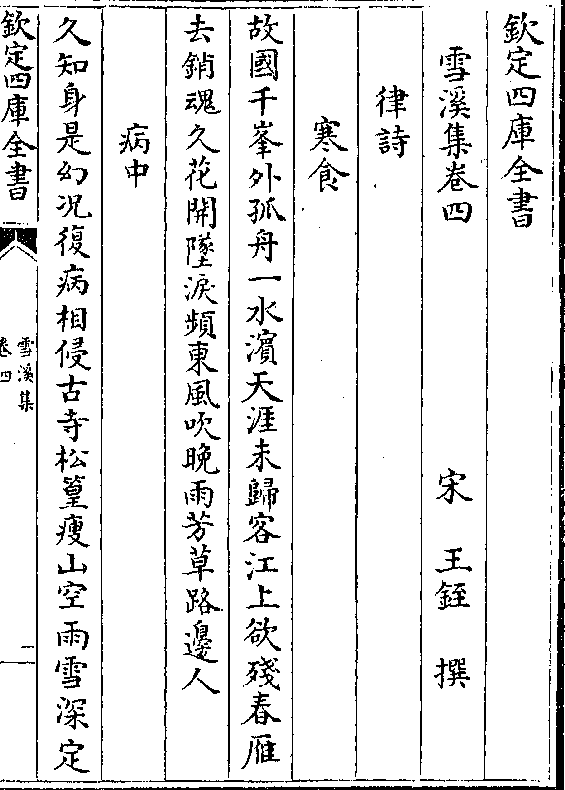 欽定四庫全書
雪溪集卷四
宋 王銍 撰
律詩
寒食
故國千峯外孤舟一水濱天涯未歸客江上欲殘春雁
去銷魂久花開墜淚頻東風吹晚雨芳草路邊人
病中
久知身是幻况復病相侵古寺松篁瘦山空雨雪深定
欽定四庫全書
雪溪集
卷四
一